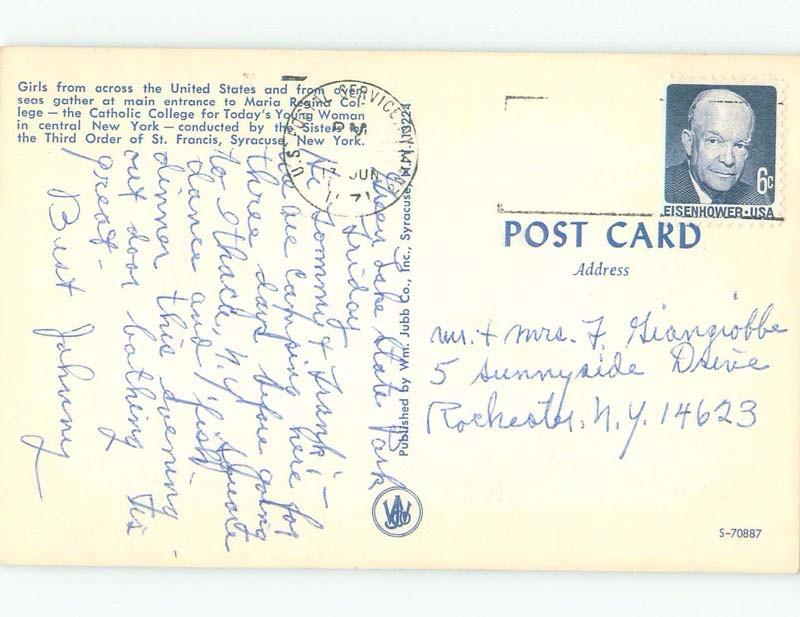 Girls from across the United States and from over-
seas gather at main entrance to Maria Regina Col-
lege — the Catholic College for Today's Young Woman
in central New York — conducted by the Sisters of
the Third Order of St. Francis, Syracuse, New York.
Green Lake State Park
Friday
Hi Tommy & Frank! —
We are camping here for
three days before going
to Ithaca, N.Y. Square
dance and fish
dinner this evening -
out door bathing tis
great -
Best Johnney
Published by Wm. Jubb Co., Inc., Syracuse, N.Y. 13224
U.S. POSTAL SERVICE NY
PM
17 JUN
6c
EISENHOWER·USA
POST CARD
Address
Mr. + Mrs. F. Giangiobbe
5 Sunnyside Drive
Rochester, N.Y. 14623
S-70887